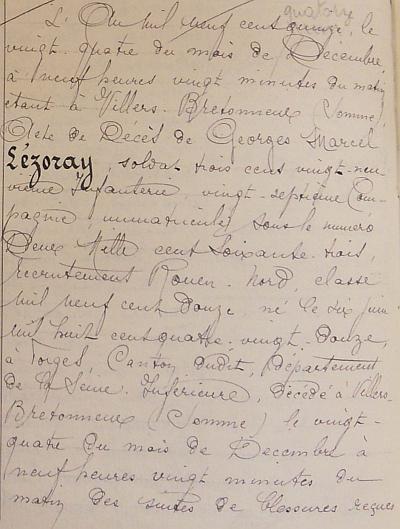 quatorze
L'An mil neuf cent quinze, le
vingt-quatre du mois de Décembre
à neuf heures vingt minutes du matin
étant à Villers-Bretonneux (Somme)
Acte de Décès de Georges Marcel
Lézoray, soldat trois cent vingt-neu-
vième Infanterie, vingt-septième Com-
pagnie, immatriculé sous le numéro
Deux Mille cent soixante-trois,
recrutement Rouen-Nord, classe
mil neuf cent Douze, né le six juin
mil huit cent quatre-vingt-Douze,
à Forges, Canton dudit, Département
de la Seine-Inférieure, décédé à Villers-
Bretonneux (Somme) le vingt-
quatre du mois de Décembre à
neuf heures vingt minutes du
matin des suites de blessures reçues